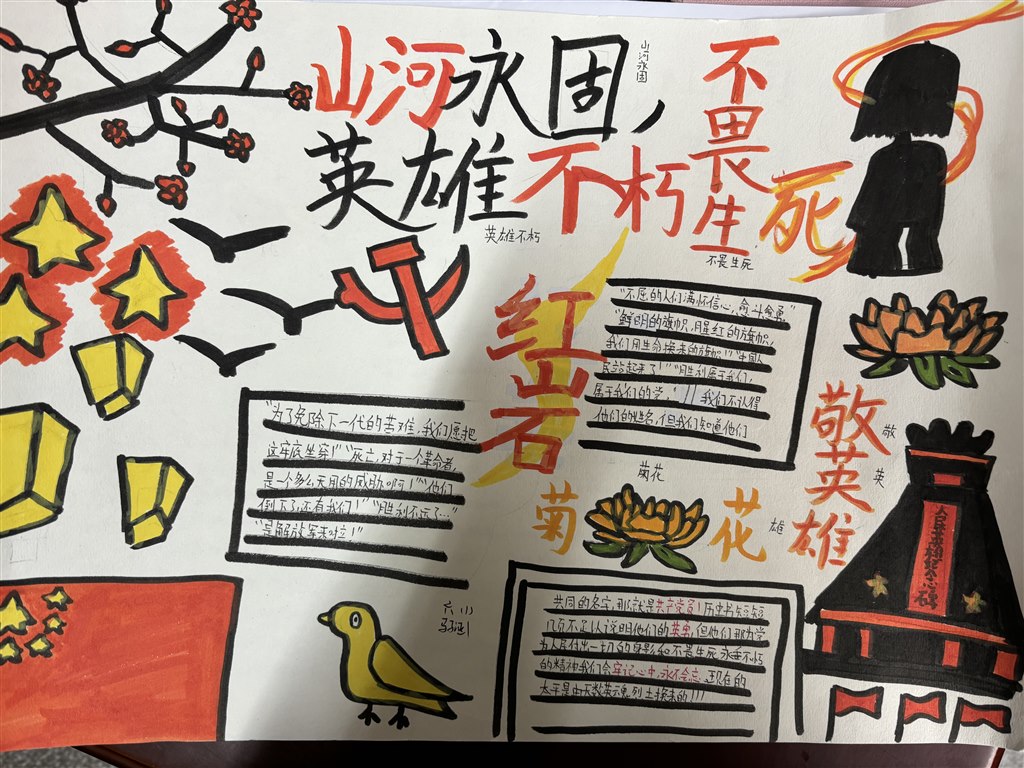 山河永固，
山河永固
英雄不朽
英雄不朽
不畏生死
不畏生死
红岩
"不屈的人们满怀信心，愈斗愈勇"
"鲜明的旗帜，腥红的旗帜，
我们用生命换来的旗帜！""中国人
民站起来了！""胜利属于我们，
属于我们的党。"我们不认得
他们的姓名，但我们知道他们
"为了免除下一代的苦难，我们愿把
这牢底坐穿！""死亡，对于一个革命者，
是一个多么无用的威胁啊！""他们
倒下了，还有我们！""胜利不远了…"
"是解放军来啦！"
敬英雄
敬
英
雄
菊花
菊花
人民英雄纪念碑
六(1)
共同的名字，那就是共产党员！历史书短短
几页不足以说明他们的英勇，但他们那为党
为人民付出一切的身影和不畏生死、永垂不朽
的精神我们会牢记心中，永不会忘，现在的
太平是由无数英雄烈士换来的！！！